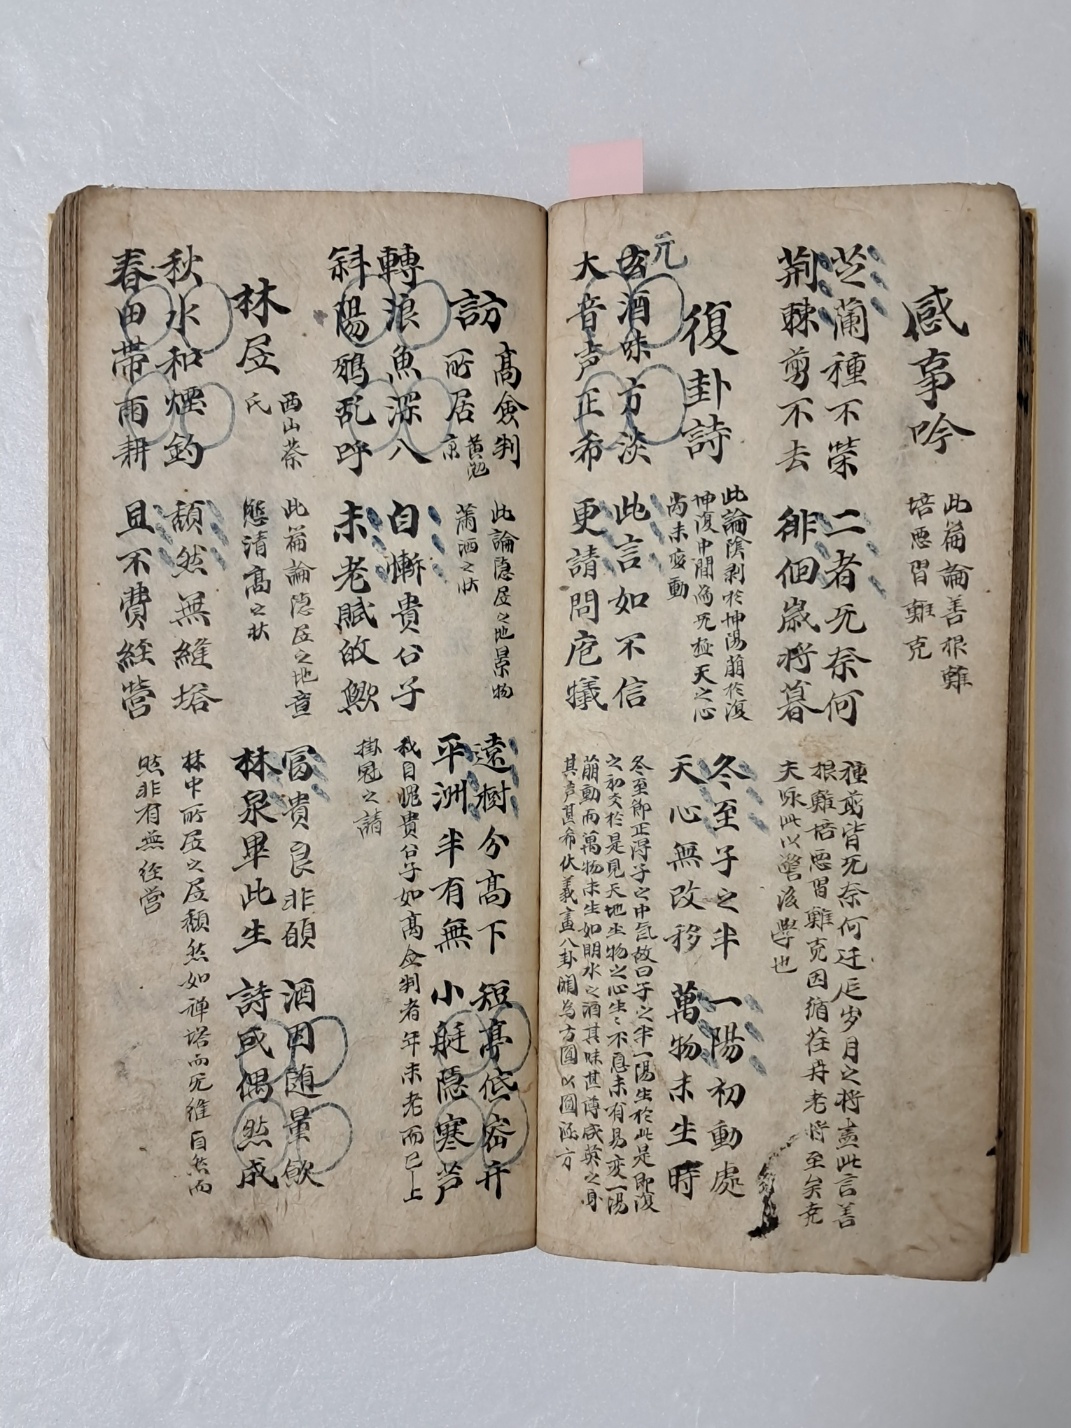 感事吟
此篇論善根難
培惡習難克
芝蘭種不榮
荆棘剪不去
二者旡奈何
徘徊歲將暮
種剪皆旡奈何迁居岁月之将盡此言善
根難培惡習難克因循荏苒老将至矣尭
夫咏此以警後學也
復卦詩
此論陰剥於坤陽萠於復
坤復中間為旡極天之心
尚未發動
冬至子之半
天心無改移
一陽初動處
萬物未生時
元
玄酒味方淡
大音声正希
此言如不信
更請問庖犧
冬至節正得子之中氣故曰子之半一陽生於此是即復
之初爻於是見天地生物之心生〻不息未有易変一陽
萠動而萬物未生如明水之酒其味甚薄咸英之身
其声甚希伏羲畫八卦開為方圓以圓涵方
訪高僉判
所居
黄勉
京
此論隐居之地景物
蕭洒之狀
遠樹分高下
平洲半有無
短亭低密卉
小艇隐寒芦
轉浪魚深八
斜陽鴉乱呼
白慚貴公子
未老賦敀歟
我自慨貴公子如高僉判者年未老而已上
掛冠之請
林居
西山蔡
氏
此篇論隐居之地童
態清高之狀
冨貴良非頋
林泉畢此生
酒因随量飲
詩或偶然成
秋水和煙釣
春田帯雨耕
頽然無維塔
且不費經營
林中所居之居頽然如禅塔而旡維自然而
然非有無徑营